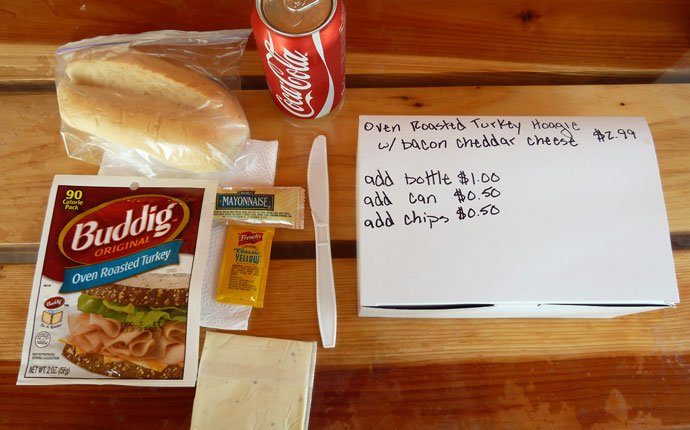 Coca-Cola
Oven Roasted Turkey Hoagie
w/ bacon cheddar cheese $2.99
add bottle $1.00
add can $0.50
add chips $0.50
90
Calorie
Pack
Buddig
ORIGINAL
Oven Roasted Turkey
Buddig
NET WT. 2 OZ. (56g)
MAYONNAISE
French's
Classic
YELLOW